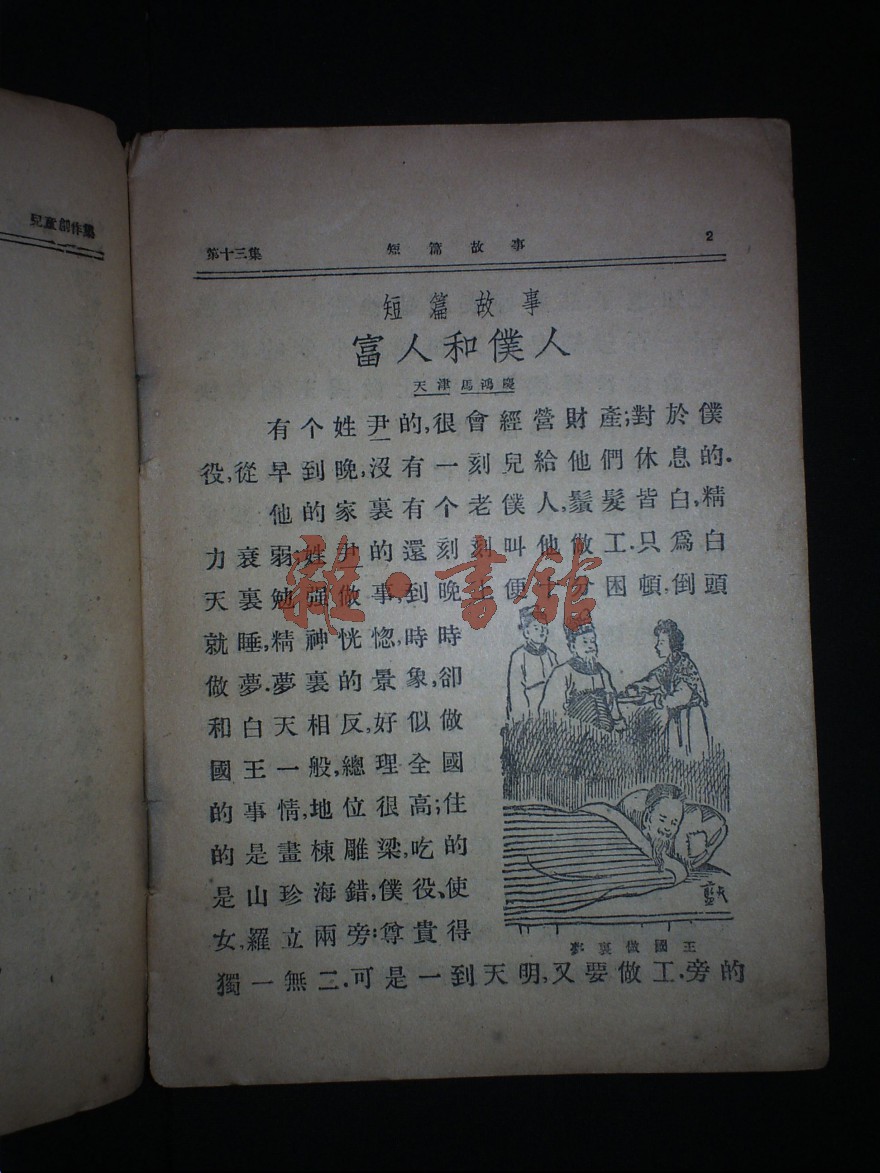 兒童創作集
第十三集 短篇故事 2
短篇故事
富人和僕人
天津馬鴻慶
有个姓尹的,很會經營財產;對於僕
役,從早到晚,沒有一刻兒給他們休息的.
他的家裏有个老僕人,鬚髮皆白,精
力衰弱;姓尹的還刻刻叫他做工.只爲白
天裏勉强做事,到晚上便十分困頓,倒頭
就睡,精神恍惚,時時
做夢.夢裏的景象,卻
和白天相反,好似做
國王一般,總理全國
的事情,地位很高;住
的是畫棟雕梁,吃的
是山珍海錯,僕役、使
女,羅立兩旁:尊貴得
夢裏做國王
獨一無二.可是一到天明,又要做工.旁的
雜·書館